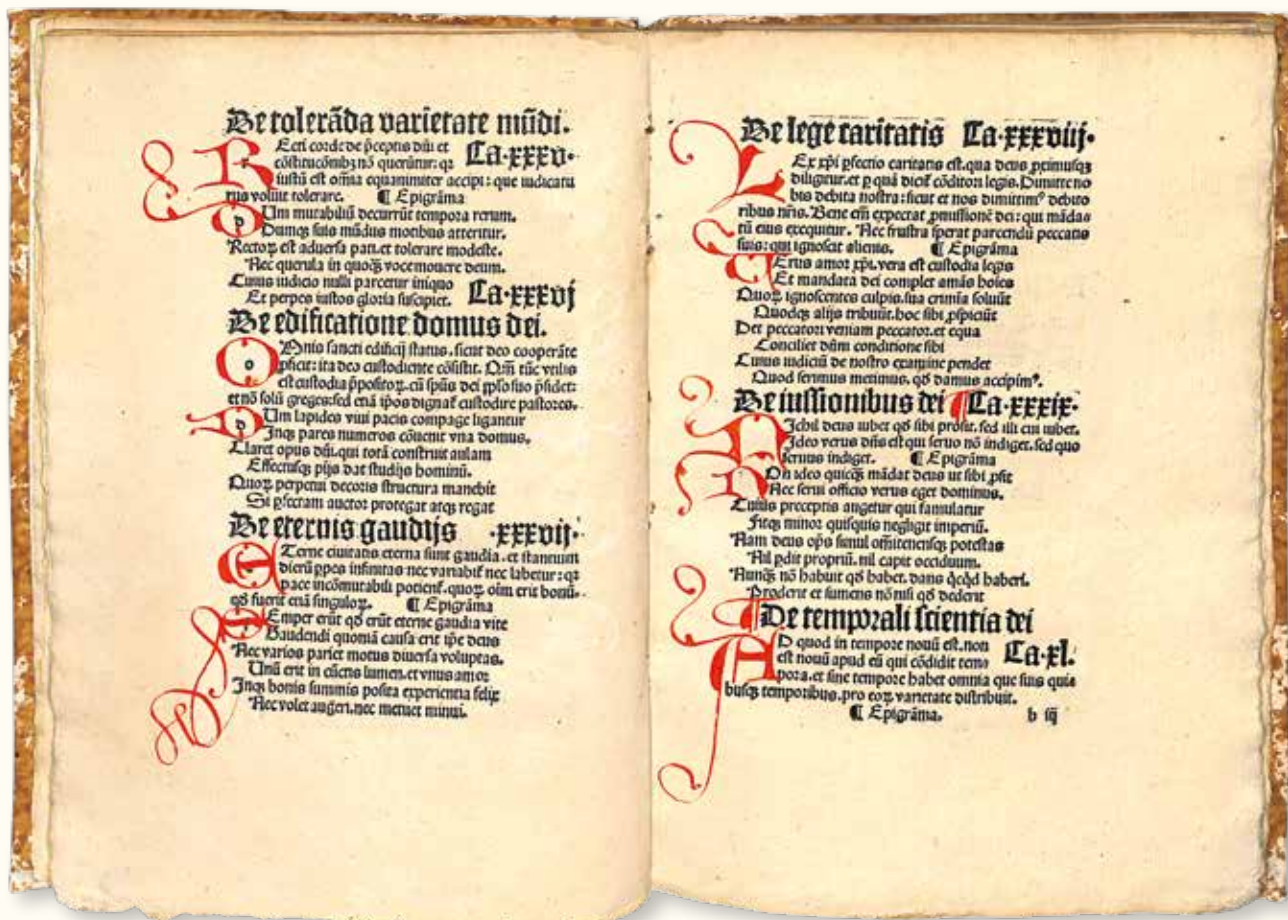 De tolerāda varietate mūdi.
Ecti corde: de p̄ceptis dn̄i et Ca·xxxv·
cōstitucōnibꝫ nō querūtur: qꝛ
iustū est om̄ia equanimiter accipi: que iudicatu
rus voluit tolerare. ¶ Epigrāma
Um mutabiliū decurrūt tempora rerum.
Dumqꝫ suis mūdus motibus atteritur.
Rectoꝝ est aduersa pati. et tolerare modeste.
Nec querula in quoqꝫ voce mouere deum.
Cuius iudicio nulli parcetur iniquo
Et perpes iustos gloria suscipiet. Ca·xxxvj
De edificatione domus dei.
Mnis sancti edificij status. sicut deo cooperāte
ꝓficit: ita deo custodiente cōsistit. Qm̄ tūc vtilis
est custodia p̄positoꝝ. cū spūs dei pp̄lo suo p̄sidet:
et nō solū greges: sed etiā ip̄os dignat̄ custodire pastores.
Um lapides viui pacis compage ligantur
Inqꝫ pares numeros cōuenit vna domus.
Claret opus dn̄i. qui totā construit aulam
Effectusqꝫ pijs dat studijs hominū.
Quoꝝ perpetui decoris structura manebit
Si ꝑfectam auctor protegat atqꝫ regat
De eternis gaudijs ·xxxvij·
Terne ciuitatis eterna sunt gaudia. et stantium
dierū ꝑpes infinitas nec variabit̄ nec labetur: qꝛ
pace incōmutabili potient̄. quoꝝ oīm erit bonū.
qd̄ fuerit etiā singuloꝝ. ¶ Epigrāma
Emper erūt qd̄ erūt eterne gaudia vite
Gaudendi quoniā causa erit ip̄e deus
Nec varios pariet motus diuersa voluptas.
Unū erit in cūctis lumen. et vnus amor
Inqꝫ bonis summis posita experientia felix
Nec volet augeri. nec metuet minui.
De lege caritatis Ca·xxxviij·
Ex xp̄i ꝑfectio caritatis est. qua deus ꝓximusqꝫ
diligitur. et ꝑ quā dicit̄ cōditori legis. Dimitte no
bis debita nostra: sicut et nos dimittimꝰ debito
ribus nr̄is. Bene em̄ expectat ꝓmissionē dei: qui māda
tū eius exequitur. Nec frustra sperat parcendū peccatis
suis: qui ignoscit alienis. ¶ Epigrāma
Erus amor xp̄i. vera est custodia legis
Et mandata dei complet amās hoīes
Quoꝝ ignoscentes culpis. sua crimīa soluūt
Quodqꝫ alijs tribuūt. hoc sibi ꝓspiciūt
Det peccatori veniam peccator. et equa
Conciliet dn̄m conditione sibi
Cuius iudiciū de nostro examine pendet
Quod serimus metimus. qd̄ damus accipimꝰ.
De iussionibus dei ¶ Ca·xxxix·
Ichil deus iubet qd̄ sibi prosit. sed illi cui iubet.
Ideo verus dn̄s est qui seruo nō indiget. sed quo
seruus indiget. ¶ Epigrāma
On ideo quicqꝫ mādat deus ut sibi ꝓsit
Nec serui officio verus eget dominus.
Cuius preceptis augetur qui famulatur
Fitqꝫ minor quisquis negligit imperiū.
Nam deus op̄s simul om̄itenensqꝫ potestas
Nil ꝑdit propriū. nil capit occiduum.
Nunqꝫ nō habuit qd̄ habet. dans qͥcqͥd haberi.
Proderit et sumens nō nisi qd̄ dederit
¶ De temporali scientia dei
D quod in tempore nouū est. non Ca·xl.
est nouū apud eū qui cōdidit tem
pora. et sine tempore habet omnia que suis qui
busqꝫ temporibus. pro eoꝝ varietate distribuit.
¶ Epigrāma. b iij